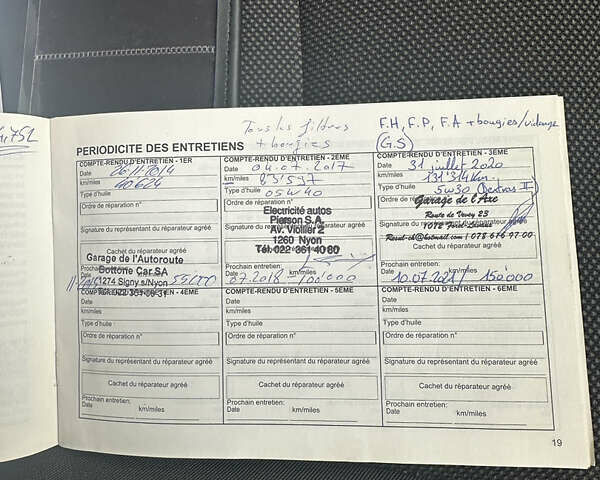 Tous les filtres
+ bougies
F.H, F.P, F.A + bougies/vidange
(G.S)
PERIODICITE DES ENTRETIENS
COMPTE-RENDU D'ENTRETIEN - 1ER
Date 06.11.2014
km/miles 40624
Type d'huile
Ordre de réparation n°
Signature du représentant du réparateur agréé
Cachet du réparateur agréé
Garage de l'Autoroute
Bottone Car SA
1274 Signy s/Nyon
Tél. 022 361 69 31
Prochain entretien:
55000
COMPTE-RENDU D'ENTRETIEN - 2EME
Date 04.07.2017
km/miles 83'597
Type d'huile 05W40
Ordre de réparation n°
Electricité autos
Pierson S.A.
Av. Viollier 2
1260 Nyon
Tél. 022 361 40 80
Prochain entretien:
Date km/miles
07.2018 100'000
COMPTE-RENDU D'ENTRETIEN - 3EME
Date 31 juillet 2020
km/miles 131'314 Km.
Type d'huile 5W30
Ordre de réparation n°
Garage de l'Axe
Route de Vevey 23
Cachet du réparateur agréé
Prochain entretien:
Date km/miles
10.07.2021 / 150'000
COMPTE-RENDU D'ENTRETIEN - 4EME
Date
km/miles
Type d'huile
Ordre de réparation n°
Signature du représentant du réparateur agréé
Cachet du réparateur agréé
Prochain entretien:
Date km/miles
COMPTE-RENDU D'ENTRETIEN - 5EME
Date
km/miles
Type d'huile
Ordre de réparation n°
Signature du représentant du réparateur agréé
Cachet du réparateur agréé
Prochain entretien:
Date km/miles
COMPTE-RENDU D'ENTRETIEN - 6EME
Date
km/miles
Type d'huile
Ordre de réparation n°
Signature du représentant du réparateur agréé
Cachet du réparateur agréé
Prochain entretien:
Date km/miles
19